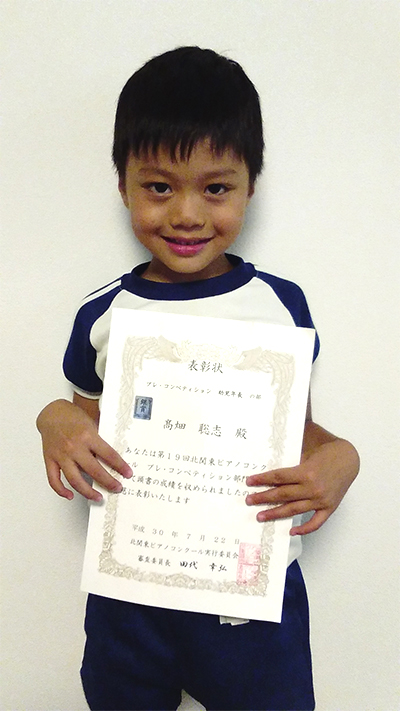 表彰状
プレ・コンペティション 幼児年長 の部
銀賞
髙畑 聡志 殿
あなたは第19回北関東ピアノコンク
ール プレ・コンペティション部門
頭書の成績を収められましたの
に表彰いたします
平成 30 年 7 月 22 日
北関東ピアノコンクール実行委員会
審査委員長 田代 幸弘